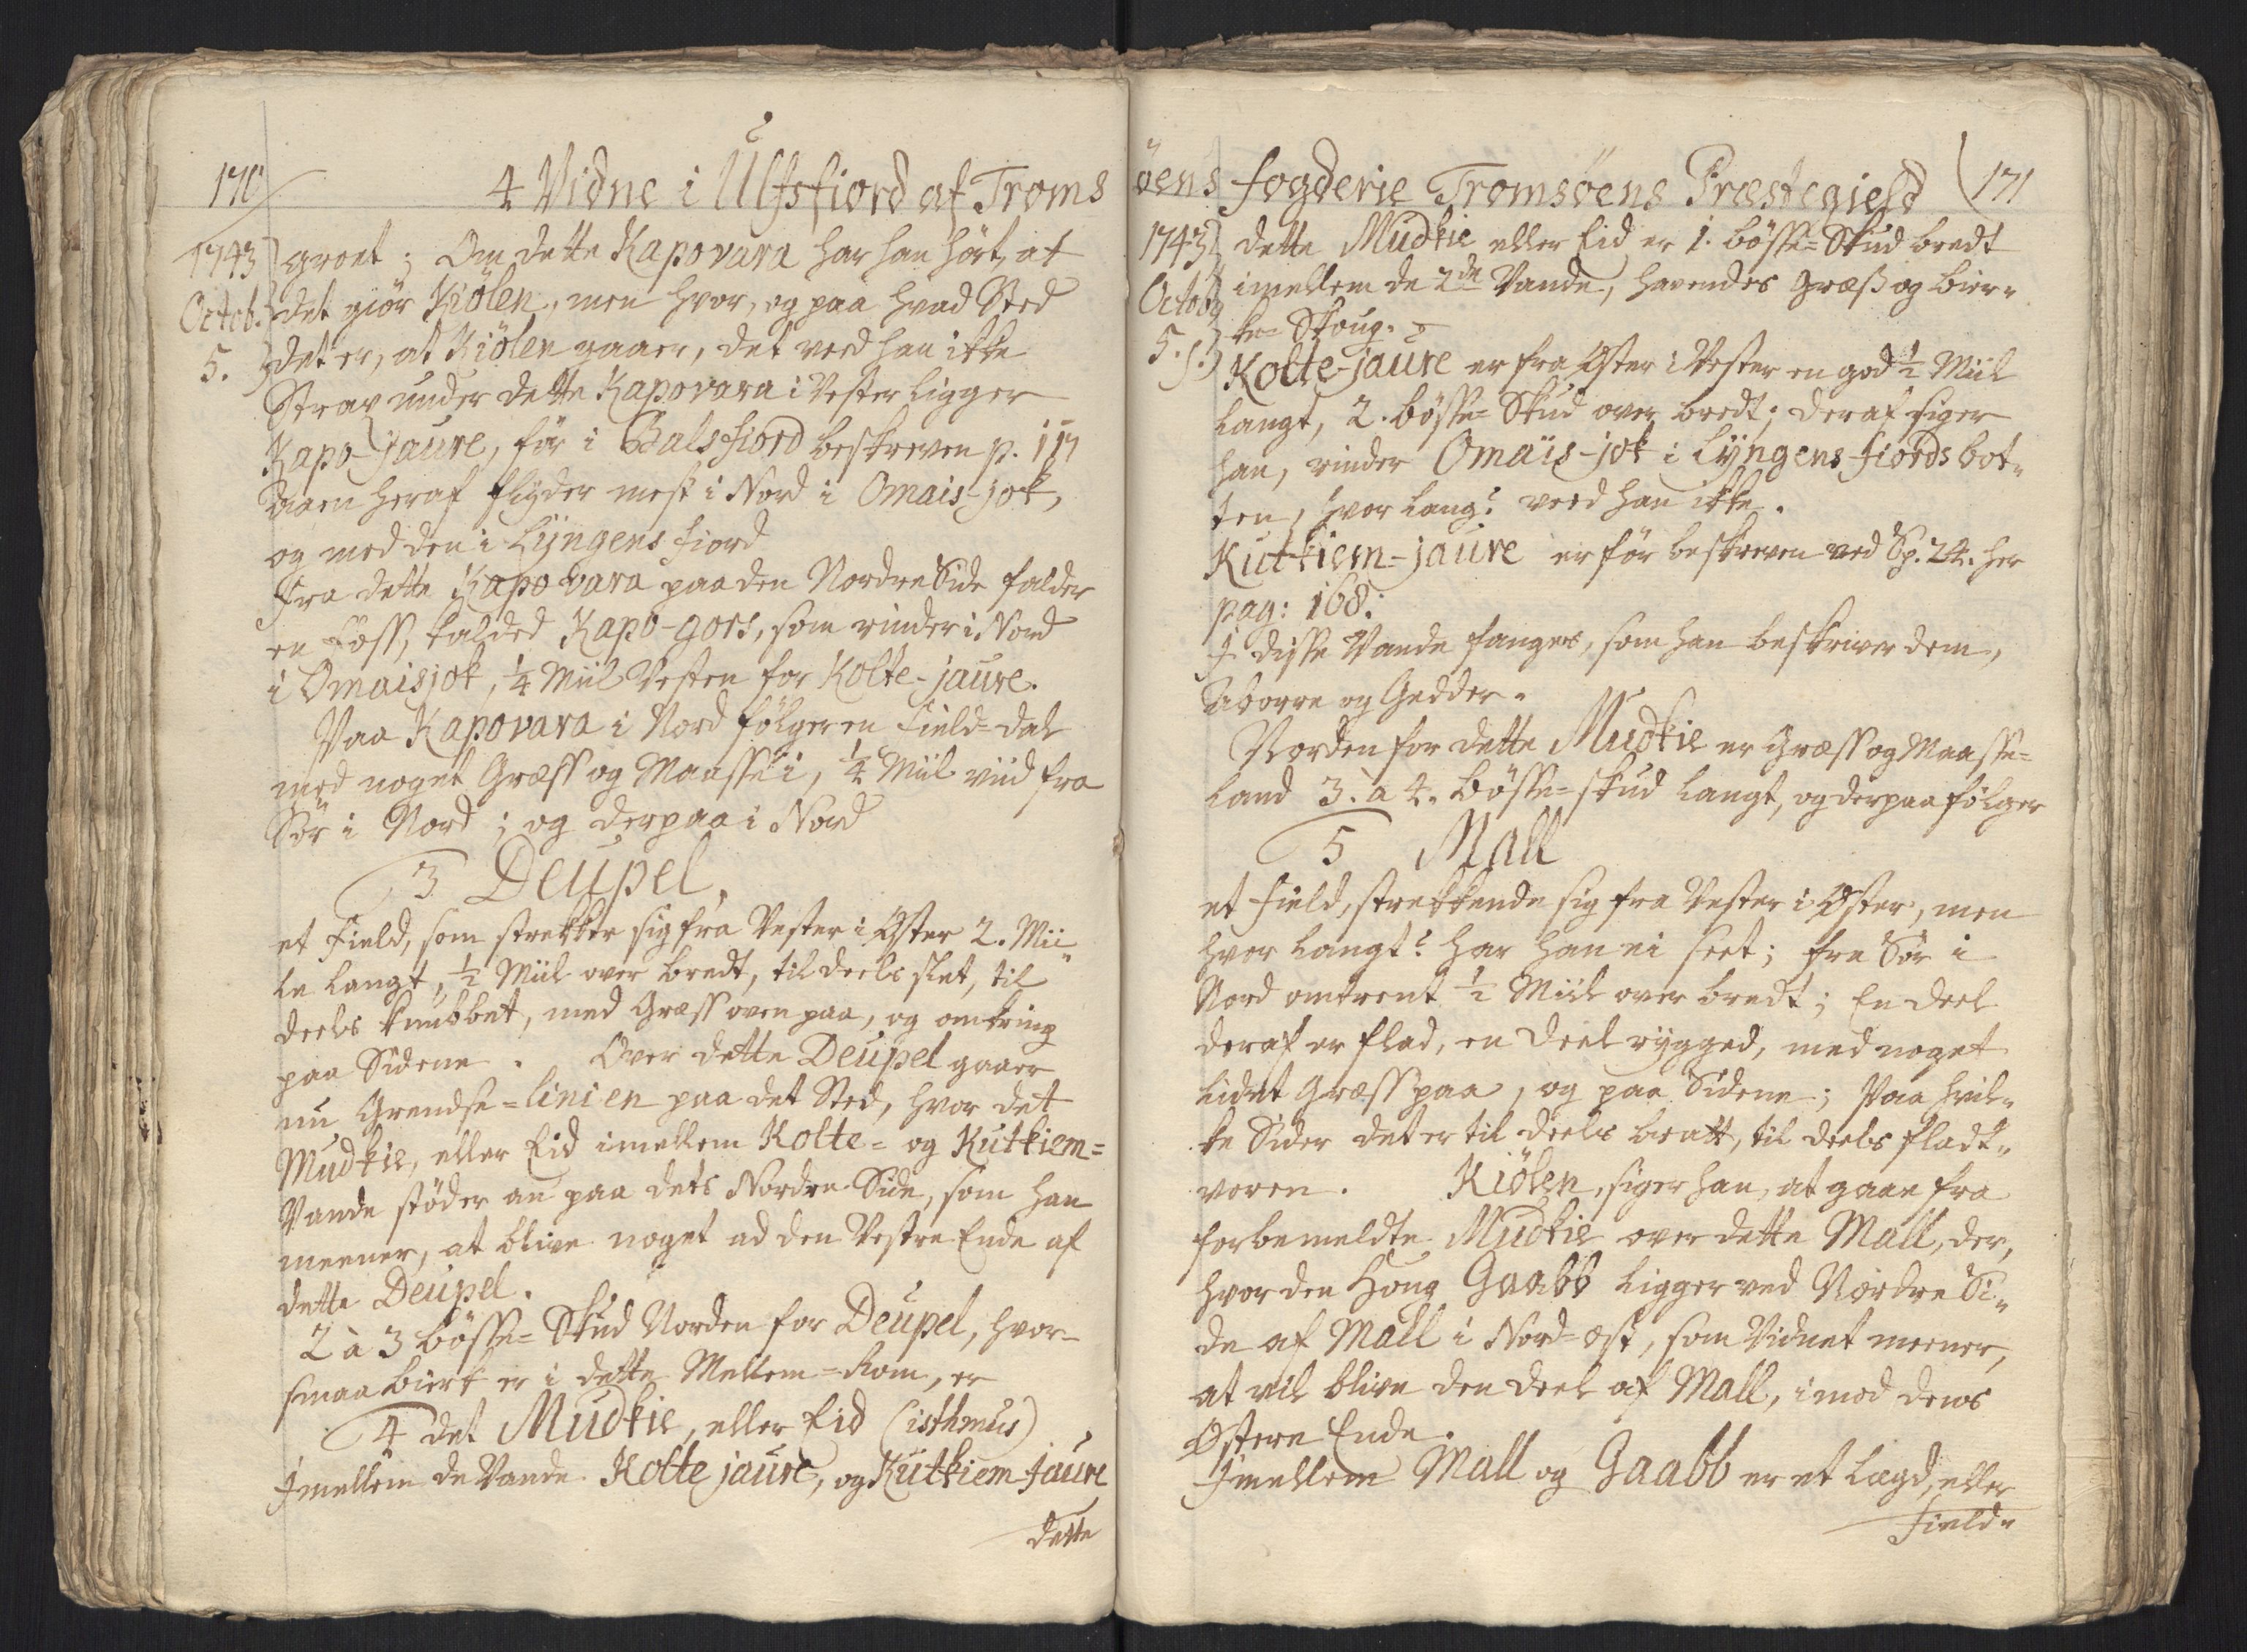 170
4 Vidne i Ulfsfiord af Troms
1743
Octob.
5.
groet; Om dette Kapovara har han hört, at
det giör Kiölen, men hvor, og paa hvad Sted
det er, at Kiölen gaaer, det veed han ikke
Strax under dette Kapovara i Vester ligger
Kapo-jaure, för i Balsfiord beskreven p. 117
Aaen heraf flyder mest i Nord i Omais-jok,
og med den i Lyngens fiord
Fra dette Kapovara paa den Nordre Side falder
en Foss, kalded Kapo-gors, som rinder i Nord
i Omaisjok, 1/4 Miil Vesten for Kolte-jaure.
Paa Kapovara i Nord fölger en Field-dal
med noget Græss og Maasse i, 1/4 Miil viid fra
Sör i Nord; og derpaa i Nord
3 Deupel,
et Field, som strekker sig fra Vester i Öster 2. Mii„
le langt, 1/2 Miil over bredt, til deels slet, til
deels knubbet, med Græss oven paa, og omkring
paa Siderne. Over dette Deupel gaaer
nu Grendse-linien paa det Sted, hvor det
Mudkie, eller Eid imellem Kolte- og Kutkiem-
Vande stöder an paa dets Nordre Side, som han
meener, at blive noget ad den Vestre Ende af
dette Deupel.
2 à 3 bösse-Skud Norden for Deupel, hvor
smaa birk er i dette Mellem-Rom, er
4 det Mudkie, eller Eid (isthmus)
Imellem de Vande Kolte jaure, og Kutkiem-Jaure
dette
öens fogderie Tromsöens Præstegield
171
1743
Octob.
5.
dette Mudkie eller Eid er 1. bösse-Skud bredt
imellem de 2de Vande, havendes Græs og bir„
ke-Skoug.
Kolte-jaure er fra Öster i Vester en god 1/2 Miil
langt, 2. bösse-Skud over bredt; deraf siger
han, rinder Omais-jok i Lyngens-fiords bot„
ten, hvor lang? veed han ikke.
Kutkiem-jaure er för beskreven ved Sp. 24. her
pag: 168.
I disse Vande fanges, som han beskriver dem,
Aborre og Gedder.
Norden for dette Mudkie er Græss og Maasse-
land 3. à 4. bösse-skud langt, og derpaa fölger
5 Mall
et Field, strekkende sig fra Vester i Öster, men
hvor langt? har han ei seet; fra Sör i
Nord omtrent 1/2 Miil over bredt; En deel
deraf er flad, en deel rygged, med noget
lidet Græss paa, og paa Siderne; Paa hvil„
ke Sider det er til deels bratt, til deels fladt„
voren. Kiölen, siger han, at gaae fra
forbemeldte Mudkie over dette Mall, der,
hvor den Houg Gaabb ligger ved Nordre Si„
de af Mall i Nord-ost, som Vidnet meener,
at vil blive den deel af Mall, imod dens
Östere Ende.
Imellem Mall og Gaabb er et Lægd, eller
Field„